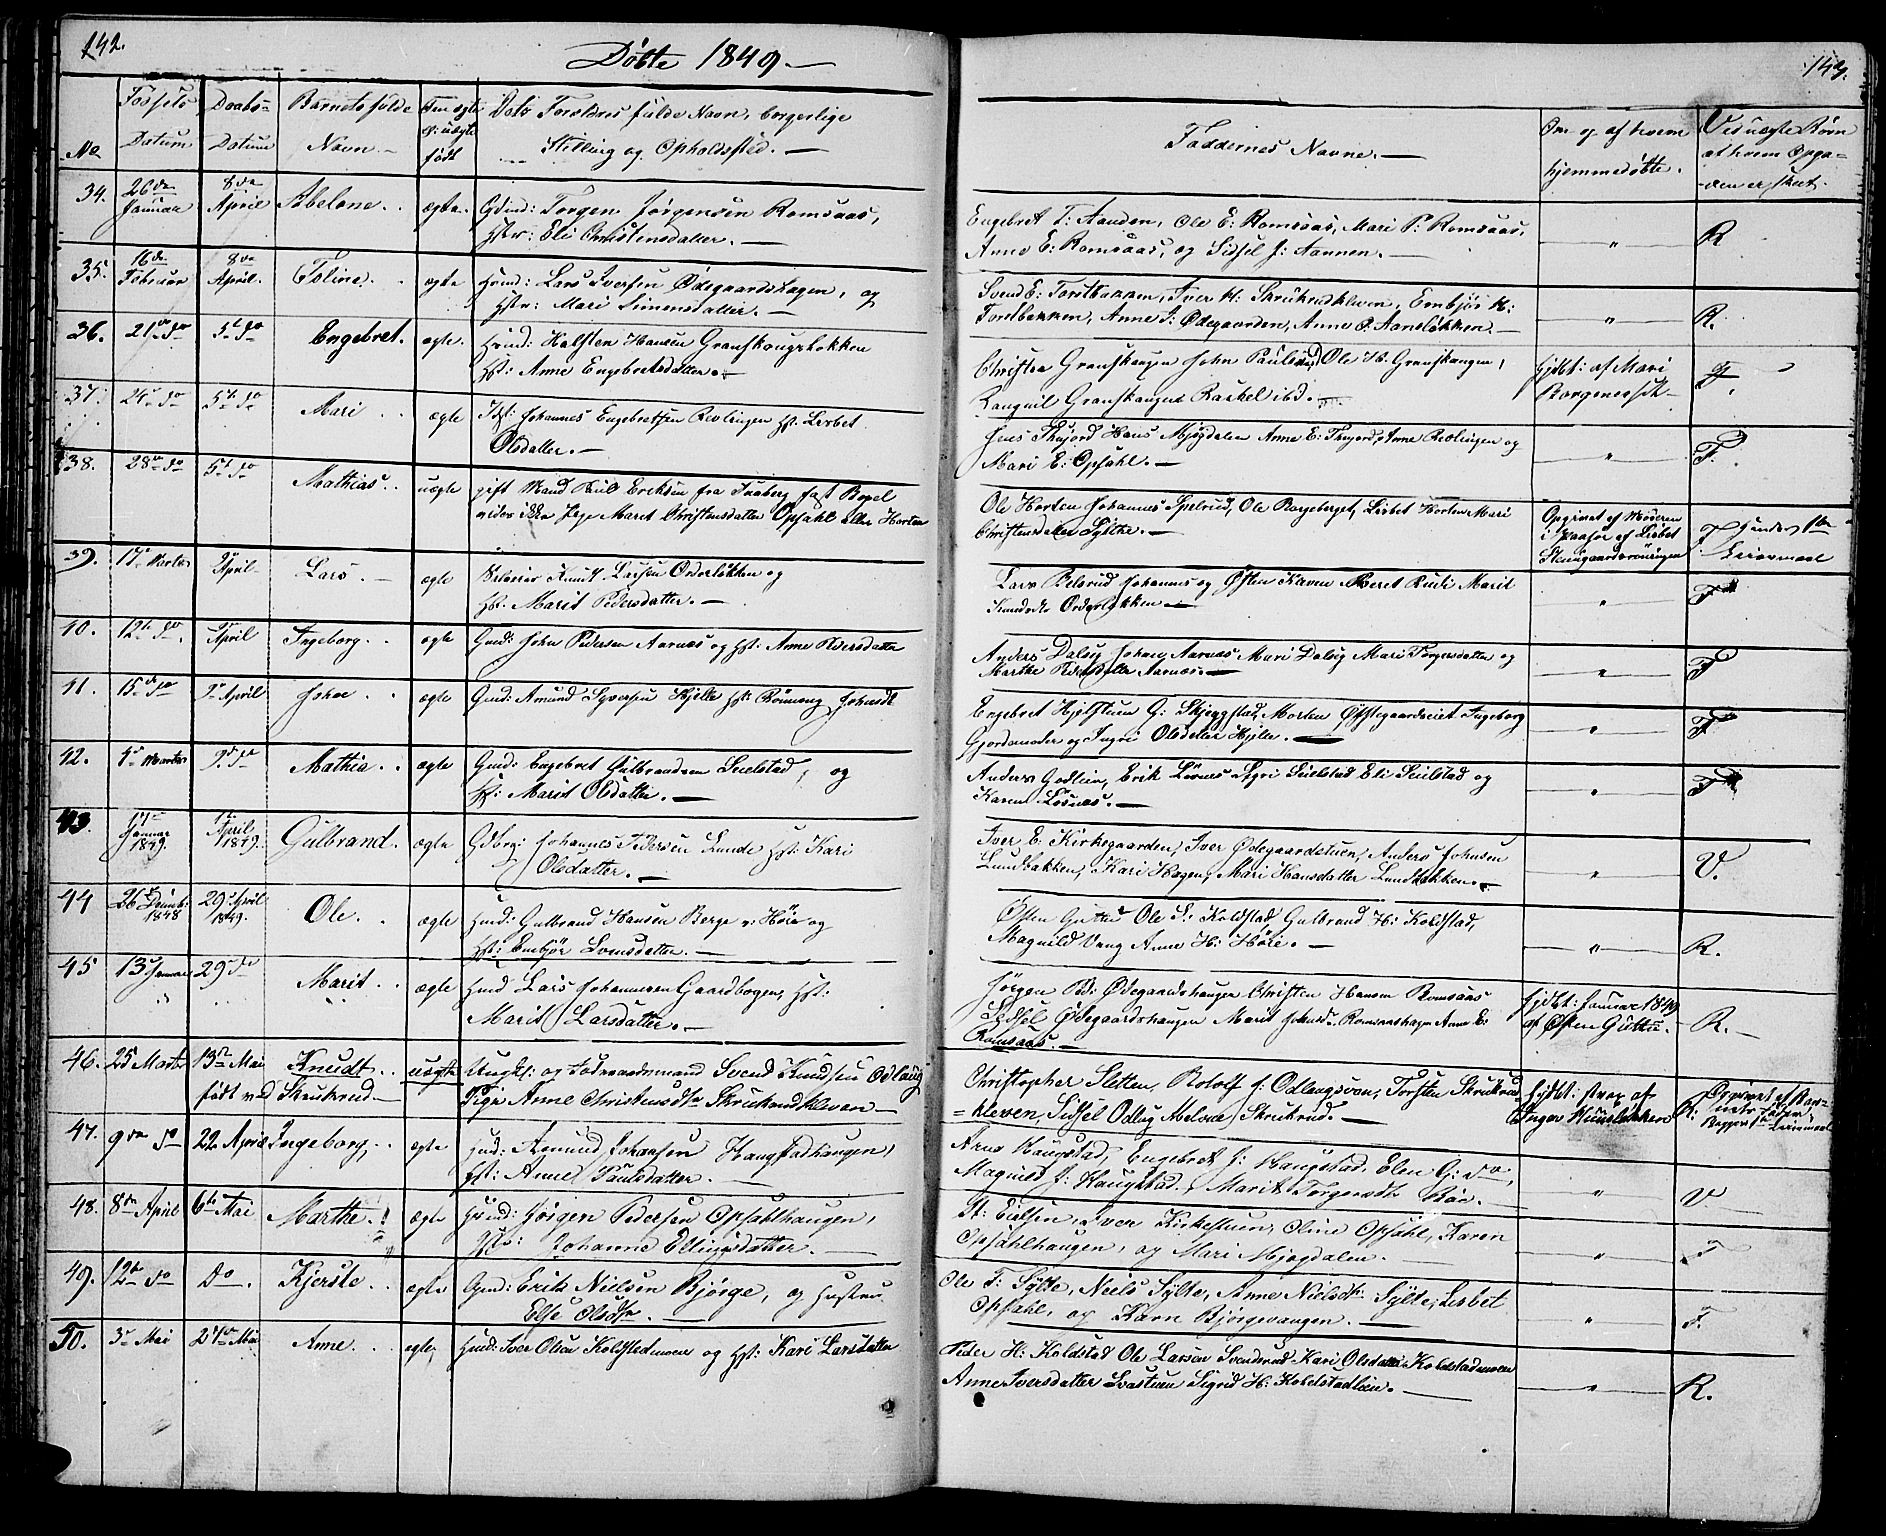 142.
Døbte 1849.
No
Fødsels Datum
Daabs Datum
Barnets fulde Navn.
Om ægte el: uægte født
Dets Forældres fulde Navn, borgerlige Stilling og Opholdssted.
34. 26de Januar 8de April Abelone. ægte. Gdmd: Torgen Jørgensen Romsaas,
Hstr: Eli Christensdatter.
35. 16de Februar 8de April. Toline. ægte Hmd: Lars Iversen Ødegaardshagen, og
Hstr: Mari Simensdatter.
36. 21de do 5te do Engebret. ægte. Hmd: Halsten Hansen Granskougsløkken
Hst: Anne Engebretsdatter.
37. 24de do 5te do Mari ægte Johannes Engebretsen Revlingen Hst: Lisbet
Olsdatter.
38. 28de do 5te do Mathias uægte gift Mand Eriksen fra fast Bopel
vides ikke Pige Maret Christensdatter Opsahl eller Horten
39. 17de Marts April Lars. ægte Knudt Larsen Oderløkken og
Hst. Marit Pedersdatter.
40. 12te do. April Ingeborg. ægte Gmd: John Pedersen Aarnæs og Hst: Anne Iversdatter
41. 15de do April John ægte Gmd: Amund Syversen Hjelle Hst: Rønnoug Johnsdt
42. 4de Marts do Mathia ægte Gmd: Engebret Gulbrandsen Snilstad, og
Hst: Marit Olsdatter.
43. Januar 1849. April 1849. Gulbrand. ægte Gdbrg: Johannes Pedersen Lunde Hst: Kari
Olsdatter.
44 26 Decmbr 1848 29 April 1849. Ole. ægte Hmd: Gulbrand Hansen Berge v: Høie og
Hst: Embjør Svensdatter.
45 13 Januar 29 do Marit ægte Hmd Lars Johannesen Gaardbogen, Hst:
Marit Larsdatter.
46. 25 Marts 13de Mai Knudt uægte Ungk: og Jordmand Svend Knudsen Odlaug
født ved Skrukrud Pige Anne Christensdtr Skrukrudkleven
47. 9de do 22 April Ingeborg, ægte Hmd: Amund Johansen Haugstadhaugen,
Hst: Anne Paulsdatter.
48. 8de April 6te Mai Marthe. ægte Hmd: Jørgen Pedersen Opsahlhaugen,
Hst: Johanne Ellingsdatter.
49. 12te do Do. Kjerste ægte Gmd: Erik Nielsen Bjørge, og Hustru
Else Olsdtr.
50. 3de Mai 27de Mai Anne ægte, Hmd: Iver Olsen Koldstedmoen og Hst: Kari Larsdatter
143.
Faddernes Navne.
Om og af hvem hjemmedøbte.
Ved uægte Børn af hvem Opgaven er skeet.
Engebret T: Aanden, Ole E: Romsaas, Mari P: Romsaas,
Anne E: Romsaas, og Sidsel J: Aannen. " R
Svend E: Forstbakken, Iver H: Skrukrudkleven, Embjør H:
Forstbakken, Anne J: Ødegaarden, Anne P. Hansløkken. " R.
Christen Granskougen John Paulsrud Ole H. Granskougen,
Rangnil Granskougen Rachel ibd. hjdbt: af Mari Borgenesset F.
Jens Thujord Hans Mjøgdalen Anne E: Thujord, Anne Revlingen og
Mari E: Opsahl. " F.
Ole Horten Johannes Spelrud, Ole Borgeberget, Lisbet Horten Mari
Christensdatter Sylte. Opgivet af Moderen i Paasyn af Lisbet F Hendes 1ste Leiermaal
Lars Belsrud Johannes og Østen Kaven Meret Rudi Marit
Knudsdtr Oderløkken. " F
Anders Dalseg Johan Aarnæs Mari Dalseg Mari Torgersdatter og
Marthe Pedersdatter Aarnæs. " F
Engebret Hjelstuen G: Skjeggstad, Morten Øfstegaardseiet Ingeborg
Gjordemoder og Ingri Olsdatter Hjelle. " F
Anders Godlien, Erik Løsnæs Syri Snilstad Eli Snilstad og
Karen Løsnæs. " F
Iver E. Kirkegaarden, Iver Ødegaardstuen, Anders Johnsen
Lundbakken, Kari Hagen, Mari Hansdatter Lundbakken. " V.
Østen Guttu Ole S: Koldstad, Gulbrand H: Koldstad,
Magnild Vang Anne H: Høie. " R.
Jørgen Pd: Ødegaardshaugen Christen Hansen Romsaas
Sidsel Ødegaardshaugen Marit Johnsd. Romsaashagen Anne E:
Romsaas. hjdbt: Januar 1849 af Østen Guttu. R.
Christopher Sletten, Rolof J: Odlaugsven, Torsten Skrukrud
=kleven, Sidsel Odlaug Abelone Skrukrud. hjdbt: strax af Inger R: Opgivet af Barnets Fader, Begges 1ste Leiermaal
Arne Haugstad, Engebret J: Haugstad, Elen G: do,
Magnild J: Haugstad, Marit Torgersdtr Røn. " V
St: Eielsen, Iver Kirkestuen, Oline Opsahl, Karen
Opsahlhaugen, og Mari Mjøgdalen. " F
Ole T: Sylte, Niels Sylte, Anne Nielsdtr Sylte, Lisbet
Opsahl, og Karn Bjørgevangen. " F.
Peder H: Koldstad Ole Larsen Svendsrud Kari Olsdatter Koldstadmoen
Anne Iversdatter Svastuen Sigrid H: Koldstadlien. " R.